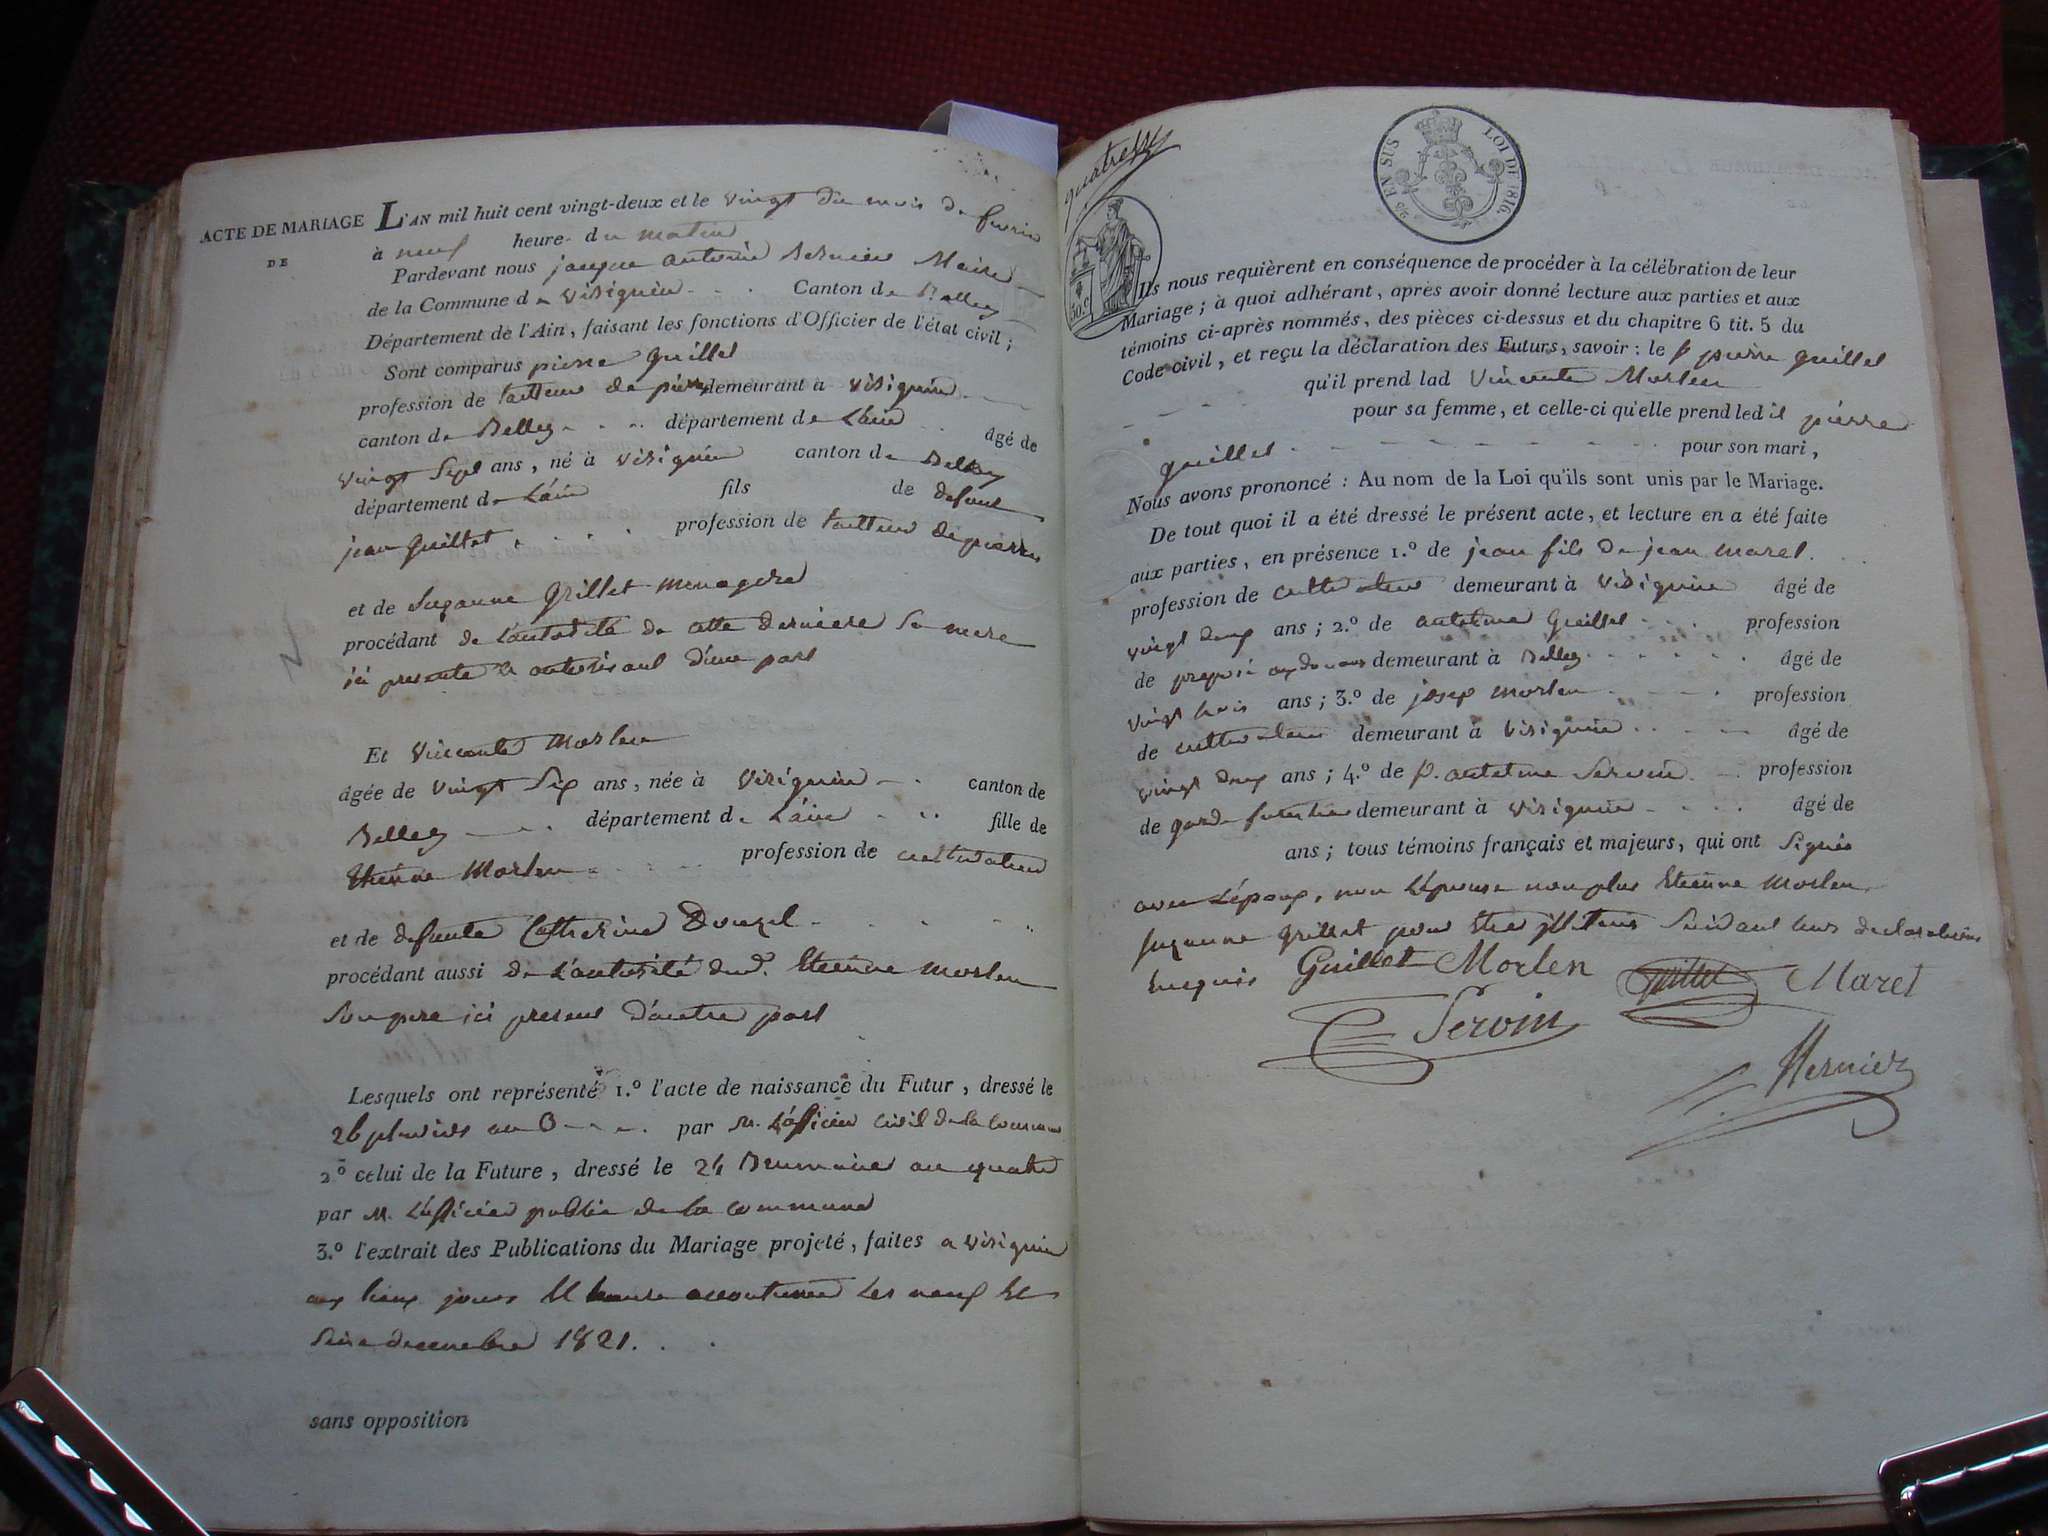 ACTE DE MARIAGE
DE
L'AN mil huit cent vingt-deux et le vingt du mois de fevrie
à neuf heure du matin
Pardevant nous jacque antoine Bernier Maire
de la Commune de Virignin Canton de Belley
Département de l'Ain, faisant les fonctions d'Officier de l'état civil;
Sont comparus pierre Guillet
profession de tailleur de pierre demeurant à Virignin
canton de Belley département de L'ain âgé de
vingt Sept ans, né à Virignin canton de Belley
département de L'ain fils de defunt
jean Guillet profession de tailleur de pierre
et de Suzanne Grillet menagere
procédant de L'autorité de cette derniere Sa mere
ici presente & autorisant d'une part
Et Vincente Morlen
âgée de vingt Six ans, née à Virignin canton de
Belley département de L'ain fille de
Etienne Morlen profession de cultivateur
et de defunte Catherine Douzel
procédant aussi de L'autorité dud. Etienne Morlen
Son pere ici present d'autre part
Lesquels ont représenté 1.° l'acte de naissance du Futur, dressé le
26 pluviose an 3 par M. L'officier civil de la commune
2.° celui de la Future, dressé le 24 Brumaire an quatre
par M. L'officier public de la commune
3.° l'extrait des Publications du Mariage projeté, faites a Virignin
aux lieux jours et heure accoutumé Les neuf Et
Seize decembre 1821.
sans opposition
quatre
EN SUS LOI DE 1816.
50.C
Ils nous requièrent en conséquence de procéder à la célébration de leur
Mariage; à quoi adhérant, après avoir donné lecture aux parties et aux
témoins ci-après nommés, des pièces ci-dessus et du chapitre 6 tit. 5 du
Code civil, et reçu la déclaration des Futurs, savoir: le pierre Guillet
qu'il prend lad Vincente Morlen
pour sa femme, et celle-ci qu'elle prend ledit pierre
Guillet pour son mari,
Nous avons prononcé: Au nom de la Loi qu'ils sont unis par le Mariage.
De tout quoi il a été dressé le présent acte, et lecture en a été faite
aux parties, en présence 1.° de jean fils de jean Marel
profession de cultivateur demeurant à Virignin âgé de
vingt deux ans; 2.° de antelme Guillet profession
de preposé aux douanes demeurant à Belley âgé de
vingt trois ans; 3.° de josep Morlen profession
de cultivateur demeurant à Virignin âgé de
vingt deux ans; 4.° de p. antelme Servin profession
de garde forestier demeurant à Virignin âgé de
ans; tous témoins français et majeurs, qui ont Signés
avec L'époux, non L'épouse non plus Etienne Morlen
Suzanne Grillet pour Etre illiteris Suivant leurs declarations
Enequis Guillet Morlen Guillet Marel
Servin
Bernier